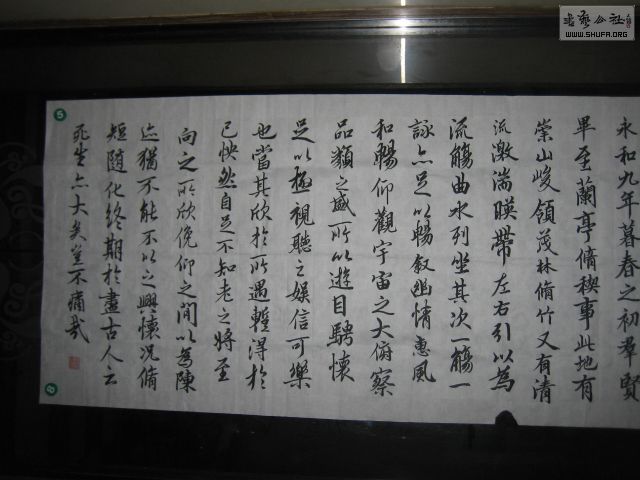 永和九年暮春之初羣賢
畢至蘭亭脩稧事此地有
崇山峻領茂林脩竹又有清
流激湍暎帶左右引以為
流觴曲水列坐其次一觴一
詠亦足以暢叙幽情惠風
和暢仰觀宇宙之大俯察
品類之盛所以遊目騁懷
足以極視聽之娛信可樂
也當其欣於所遇蹔得於
己怏然自足不知老之將至
向之所欣俛仰之間以為陳
迹猶不能不以之興懷況脩
短隨化終期於盡古人云
死生亦大矣豈不痛哉
5
8
書藝公社
WWW.SHUFA.ORG